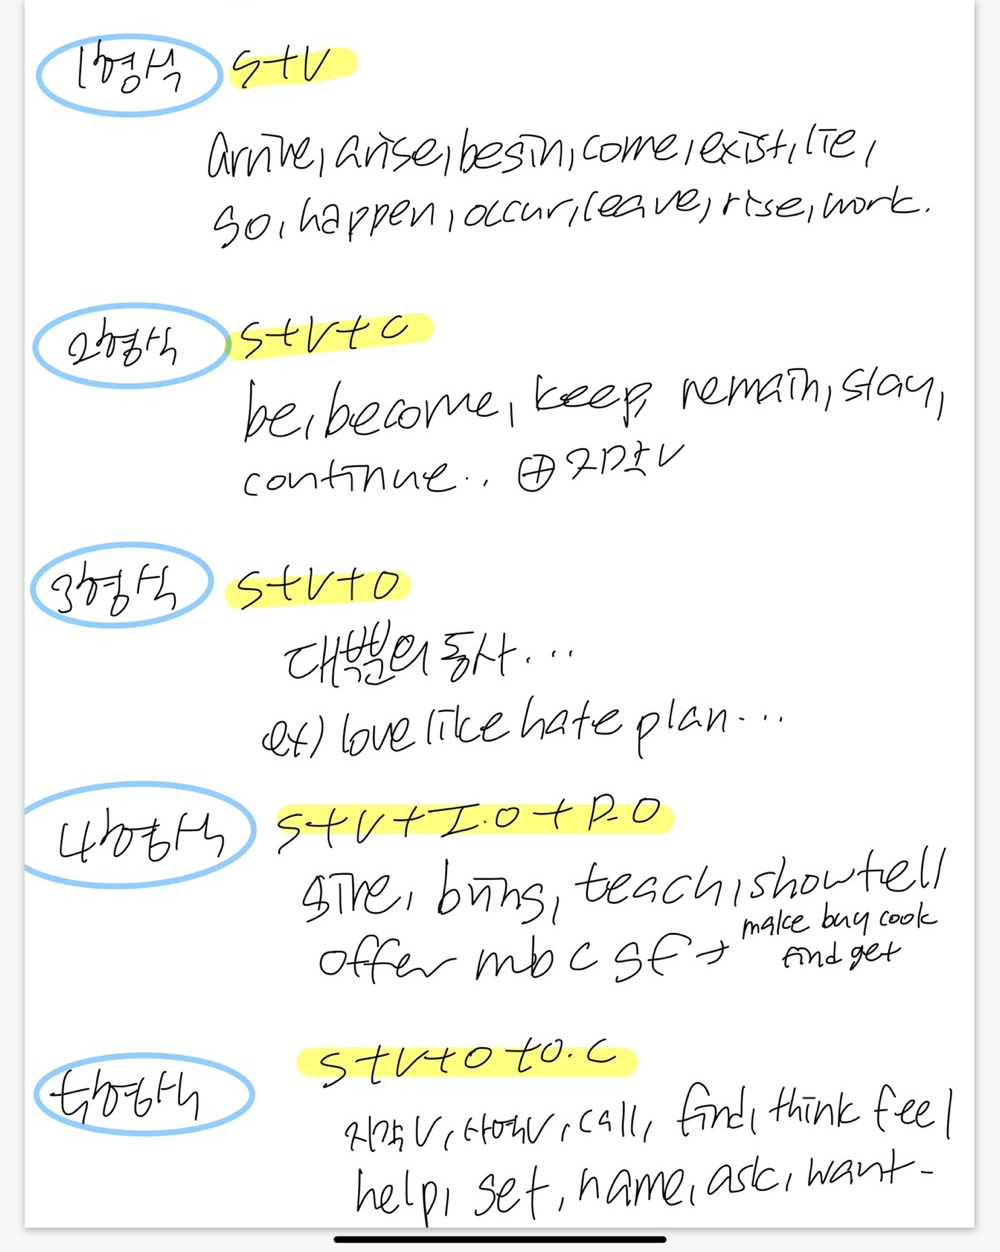 1형식 S+V
arrive, arise, begin, come, exist, lie,
go, happen, occur, leave, rise, work.
2형식 S+V+C
be, become, keep, remain, stay,
continue.. ⊕ 감각V
3형식 S+V+O
대부분의 동사...
ex) love like hate plan...
4형식 S+V+I.O+D.O
give, bring, teach, show tell
offer mbcgf → make buy cook
find get
5형식 S+V+O+O.C
지각V, 사역V, call, find, think feel
help, get, name, ask, want -